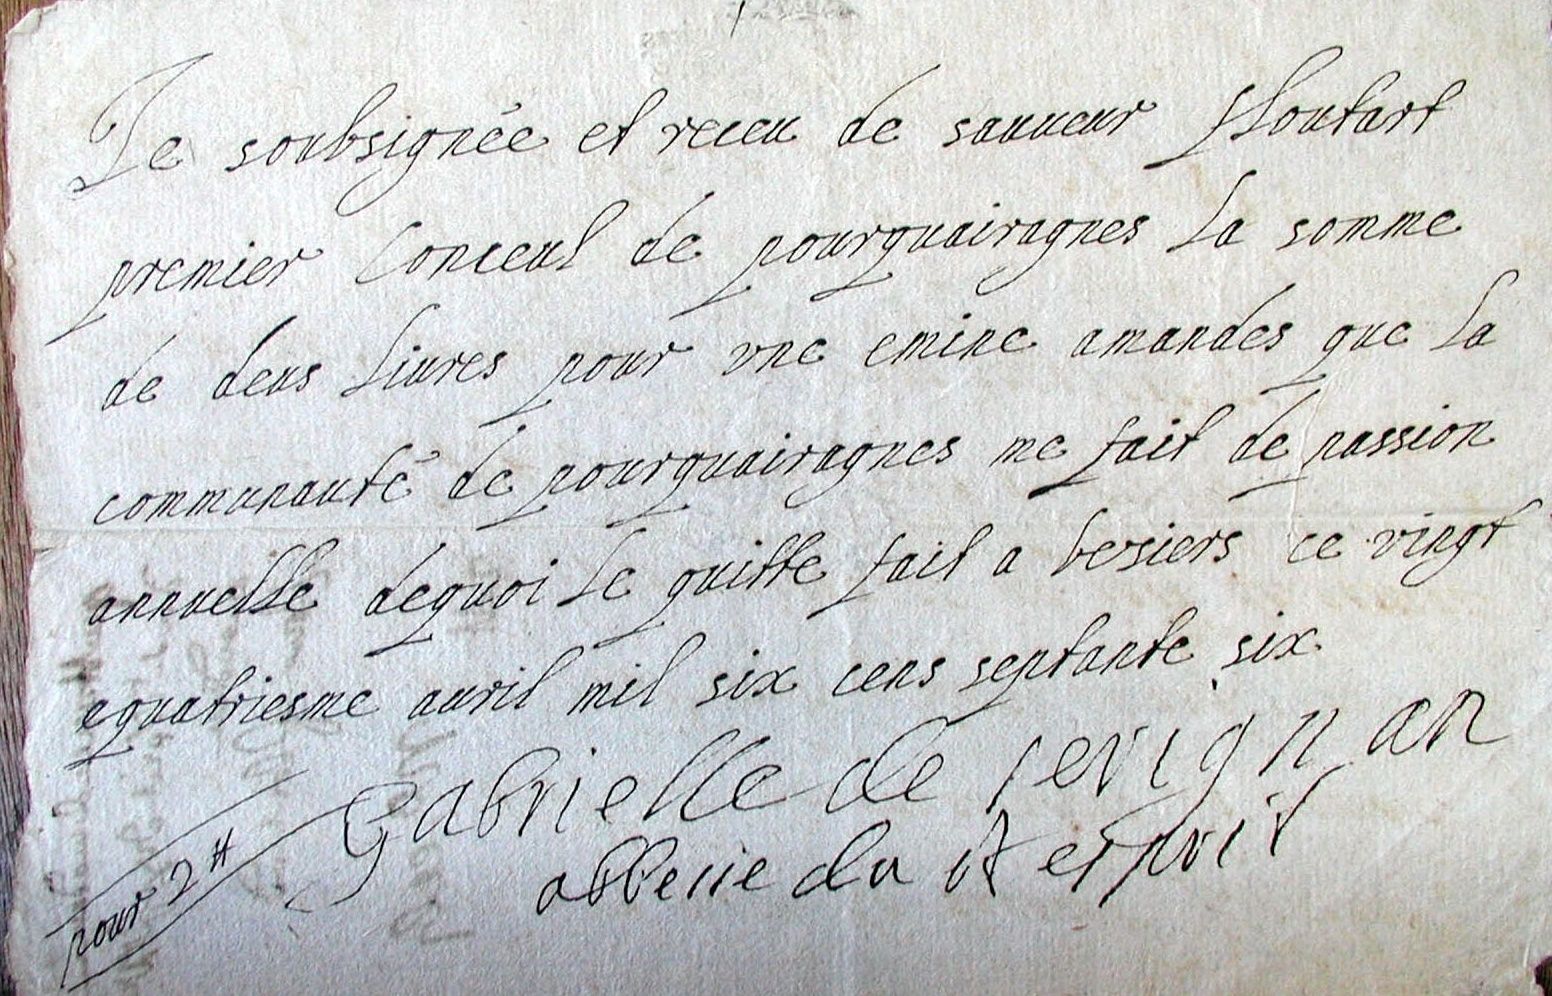 Je soubsignée et receu de sauueur Houtart
premier Conceul de pourquairagnes La somme
de deus Liures pour vne emine amandes que La
communauté de pourquairagnes me fait de passion
annuelle dequoi Le quitte fait a besiers ce vingt
equatriesme auril mil six cens septante six
Gabrielle de seuignan
abbesse du st esprit
pour 2 ₶